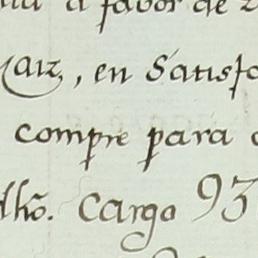 a favor de
, en Satisfa
compre para
dho. Cargo 93